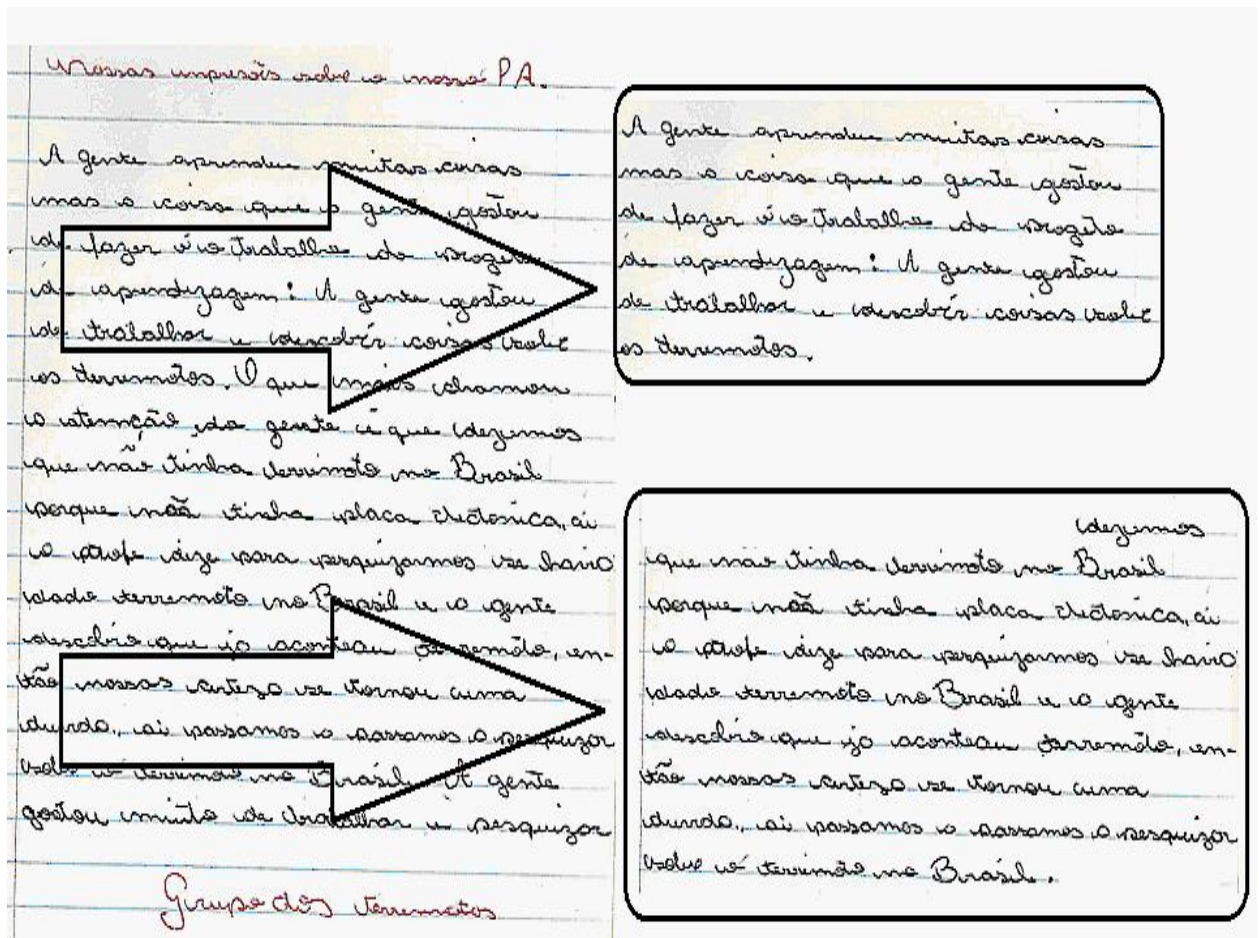 Nossas impresois sobre o nosso PA.
A gente aprendeu muitas coisas
mas a coisa que a gente gostou
de fazer é o trabalho do progeto
de aprendizagem: A gente gostou
de trabalhar e descobrír coisas sobre
os terremotos. O que mais chamou
a atemção da gente é que dezemos
que não tinha terrimoto no Brasil
porque não tinha placa téctonica, ai
o profe dize para perquizarmos se havio
dado terremoto no Brasil e a gente
descobrio que ja aconteceu terremoto, en-
tão nossas certeza se tornou uma
duvida, ai passamos a passamos a pesquizar
sobre o terrimoto no Brasil. A gente
gostou muito de trabalhar e pesquizar
Grupo dos terremotos
A gente aprendeu muitas coisas
mas a coisa que a gente gostou
de fazer é o trabalho do progeto
de aprendizagem: A gente gostou
de trabalhar e descobrír coisas sobre
os terremotos.
dezemos
que não tinha terrimoto no Brasil
porque não tinha placa téctonica, ai
o profe dize para perquizarmos se havio
dado terremoto no Brasil e a gente
descobrio que ja aconteceu terremoto, en-
tão nossas certeza se tornou uma
duvida, ai passamos a passamos a pesquizar
sobre o terrimoto no Brasil.